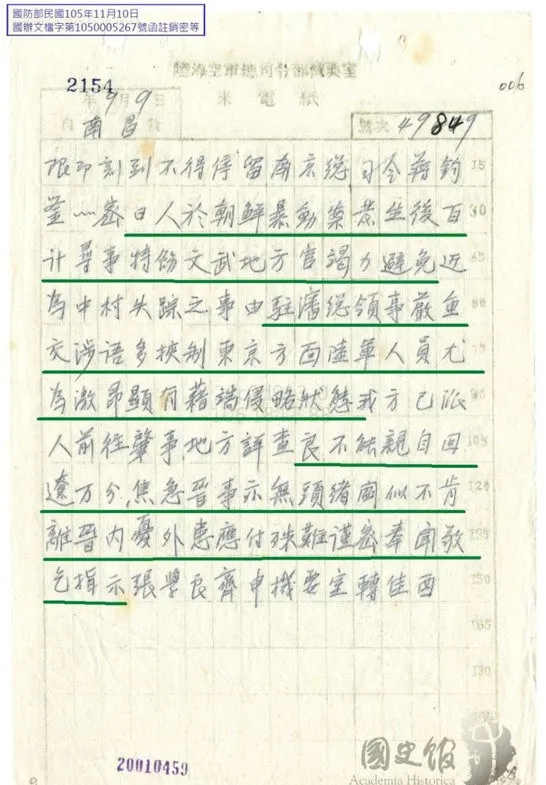 國防部民國105年11月10日
國辦文檔字第1050005267號函註銷密等
陸海空軍總司令部機要室
2154
來電紙
006
年9月9日
自南昌發
號次 49849
限即刻到不得停留南京總司令蔣鈞 15
鉴〰密日人於朝鮮暴動案發生後百 30
计尋事特飭文武地方官竭力避免近 45
為中村失踪之事由駐瀋總領事嚴重 60
交涉语多挾制東京方面陸軍人員尤 75
為激昂顯有藉端侵略狀態我方已派 90
人前往肇事地方詳查良不能親自回 105
遼万分焦急晉事亦無頭绪閻似不肯 120
離晉内憂外患應付殊難谨密奉聞敬 135
乞指示張學良齊申機要室轉佳酉 150
165
180
20010459
國史館
Academia Historica